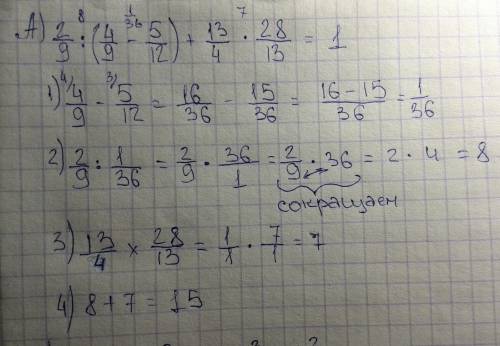 А) 2/9 : (4/9 - 5/12) + 13/4 · 28/13 = 1
8 1/36 7
1) 4/9 - 5/12 = 16/36 - 15/36 = (16-15)/36 = 1/36
2) 2/9 : 1/36 = 2/9 · 36/1 = 2/9 · 36 = 2 · 4 = 8
сокращаем
3) 13/4 × 28/13 = 1/1 · 7/1 = 7
4) 8 + 7 = 15